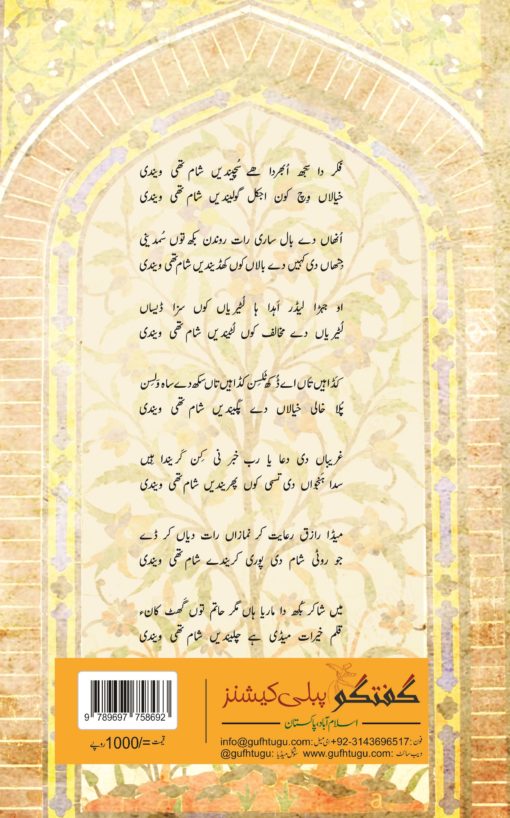 فکر دا سجھ اُبھردا ھے سُچیندیں شام تھی ویندی
خیالاں وچ کون اجکل گولیندیں شام تھی ویندی
اُنھاں دے بال ساری رات روندن بکھ توں سُمدینی
جنھاں دی کہیں دے بالاں کوں کھڈیندیں شام تھی ویندی
او جہڑا لیڈر اَہدا ہا لُٹیریاں کوں سزا ڈیساں
لُٹیریاں دے مخالف کوں لُٹیندیں شام تھی ویندی
کڈاہیں تاں اے ڈکھ ٹلسن کڈاہیں تاں سکھ دے ساہ ولسن
پُلا خالی خیالاں دے پکیندیں شام تھی ویندی
غریباں دی دعا یا رب خبر نی کِن کریندا ہیں
سدا ہنجواں دی تسبی کوں پھریندیں شام تھی ویندی
میڈا رازق رعایت کر نمازاں رات دیاں کر ڈے
جو روٹی شام دی پوری کریندے شام تھی ویندی
میں شاکر بُکھ دا ماریا ہاں مگر حاتم توں گھٹ کانء
قلم خیرات میڈی ہے چلیندیں شام تھی ویندی
گفتگو پبلی کیشنز
اسلام آباد، پاکستان
فون: +92-3143696517 ای میل: info@gufhtugu.com
ویب سائٹ: www.gufhtugu.com سوشل میڈیا: @gufhtugu
9 789697 758692
قیمت =/1000 روپے